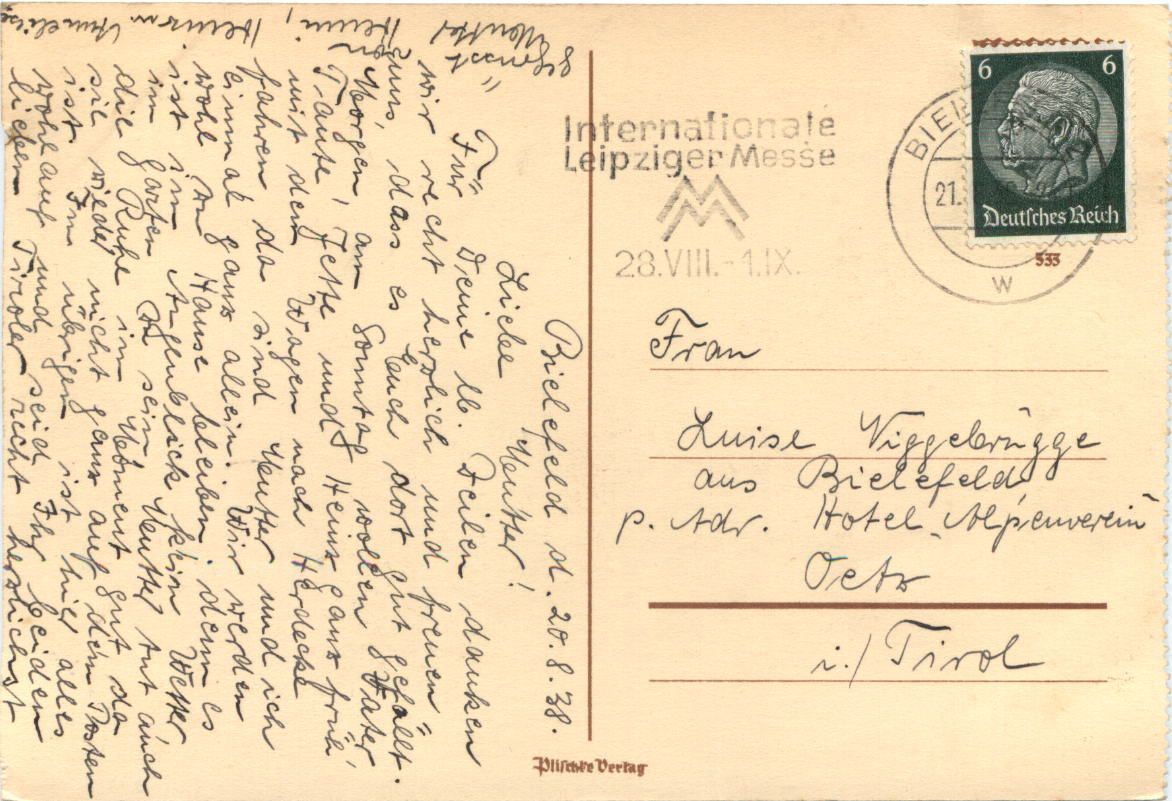 Bielefeld d. 20.8.38.
Liebe Mutter!
Für Deine lb. Zeilen danken
wir recht herzlich und freuen
uns, dass es Euch dort gut gefällt.
Morgen, am Sonntag wollen Vater,
Tante, Jette und Heinz ganz früh
mit dem Wagen nach Herdecke
fahren, da sind Mutter und ich
einmal ganz allein. Wir werden
wohl zu Hause bleiben, denn es
ist im Augenblick kein Wetter
im Garten zu sein. Mutter tut auch
die Ruhe im Moment gut, da
sie wieder nicht ganz auf dem Posten
ist. Im übrigen ist hier alles
wohlauf und seid Ihr beiden
lieben Tiroler recht herzlichst
gegrüsst von
Mutter
Internationale
Leipziger Messe
28.VIII.-1.IX.
BIEL
21.
w
6 6
Deutsches Reich
533
Frau
Luise Viggebrügge
aus Bielefeld
p. Adr. Hotel Alpenverein
Oetz
i./Tirol
Plischke Verlag